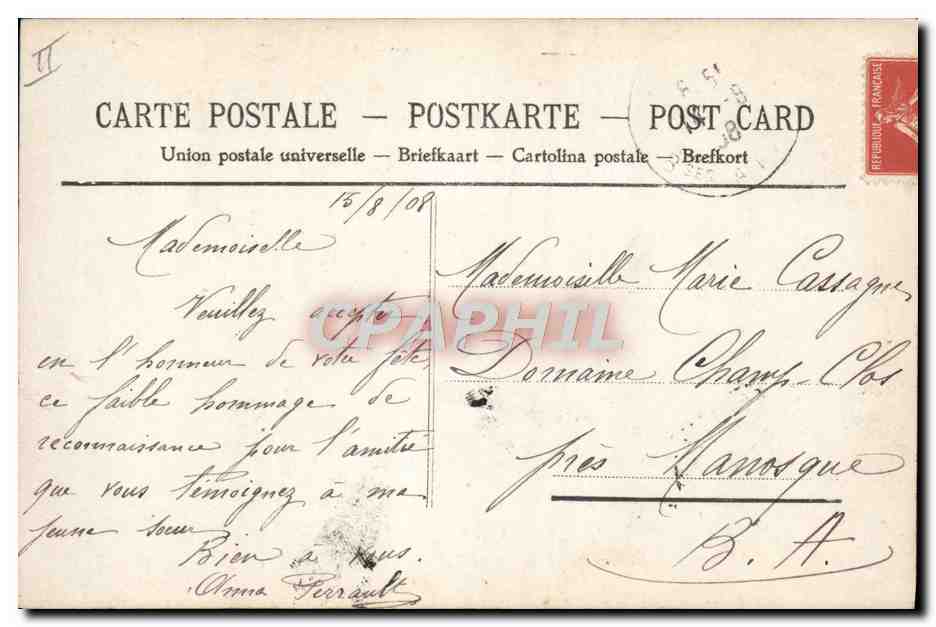 II
CARTE POSTALE — POSTKARTE — POST CARD
Union postale universelle — Briefkaart — Cartolina postale — Brefkort
REPUBLIQUE FRANÇAISE
15/8/08
Mademoiselle
Veuillez accepter
en l'honneur de votre fête,
ce faible hommage de
reconnaissance pour l'amitié
que vous témoignez à ma
jeune soeur
Bien à vous.
Anna Perrault
Mademoiselle Marie Cassagne,
Domaine Champ-Clos
près Manosque
B. A.
CPAPHIL